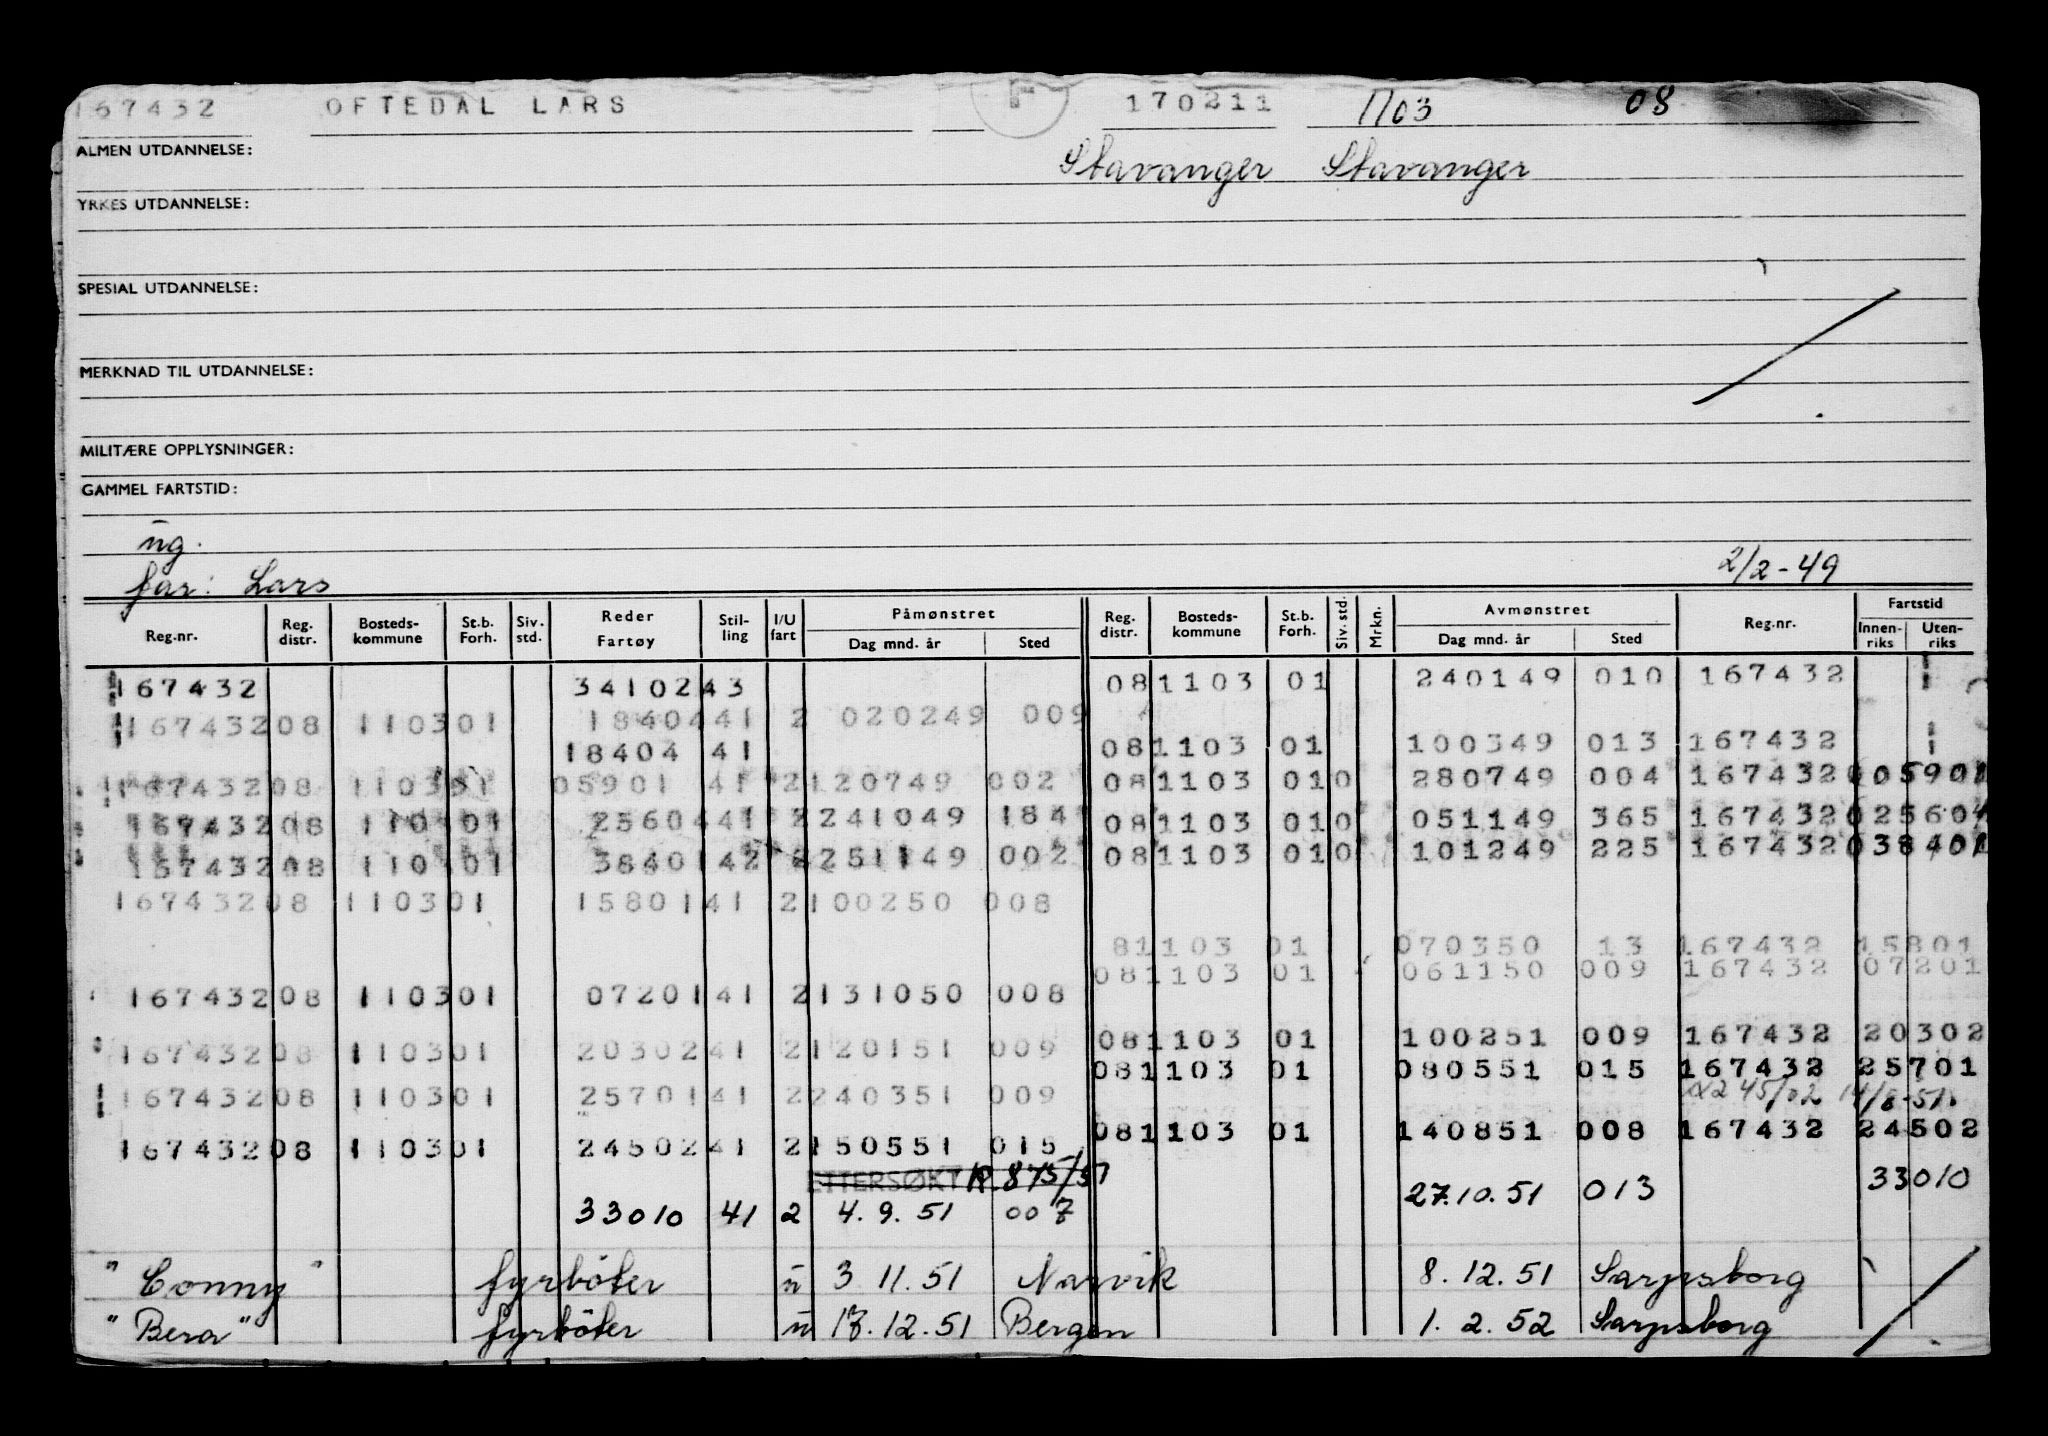 167432 OFTEDAL LARS F 170211 1103 08
ALMEN UTDANNELSE: Stavanger Stavanger
YRKES UTDANNELSE:
SPESIAL UTDANNELSE:
MERKNAD TIL UTDANNELSE:
MILITÆRE OPPLYSNINGER:
GAMMEL FARTSTID:
ug.
far: Lars 2/2-49
Reg.nr. Reg. distr. Bosteds-kommune St.b. Forh. Siv. std. Reder Fartøy Stil-ling I/U fart Påmønstret Dag mnd. år Sted Reg. distr. Bosteds-kommune St.b. Forh. Siv. std. Mrkn. Avmønstret Dag mnd. år Sted Reg.nr. Fartstid Innen-riks Uten-riks
167432 3410243 081103 01 240149 010 167432
16743208 110301 1840441 2 020249 009
18404 41 081103 01 100349 013 167432
16743208 110301 05901 41 2120749 002 081103 010 280749 004 167432005901
16743208 110301 2560441 2241049 184 081103 010 051149 365 167432025604
16743208 110301 3840142 2251149 002 081103 010 101249 225 167432038401
16743208 110301 1580141 2100250 008
81103 01 070350 13 167432 15801
081103 01 061150 009 167432 07201
16743208 110301 0720141 2131050 008
081103 01 100251 009 167432 20302
16743208 110301 2030241 2120151 009
081103 01 080551 015 167432 25701
16743208 110301 2570141 2240351 009
245/02
081103 01 140851 008 167432 24502
16743208 110301 2450241 2150551 015
ETTERSØKT R. 875/51
27.10.51 013 33010
33010 41 2 4.9.51 007
"Conny" fyrbøter u 3 11.51 Narvik 8.12.51 Sarpsborg
"Bera" fyrbøter u 17.12.51 Bergen 1.2.52 Sarpsborg